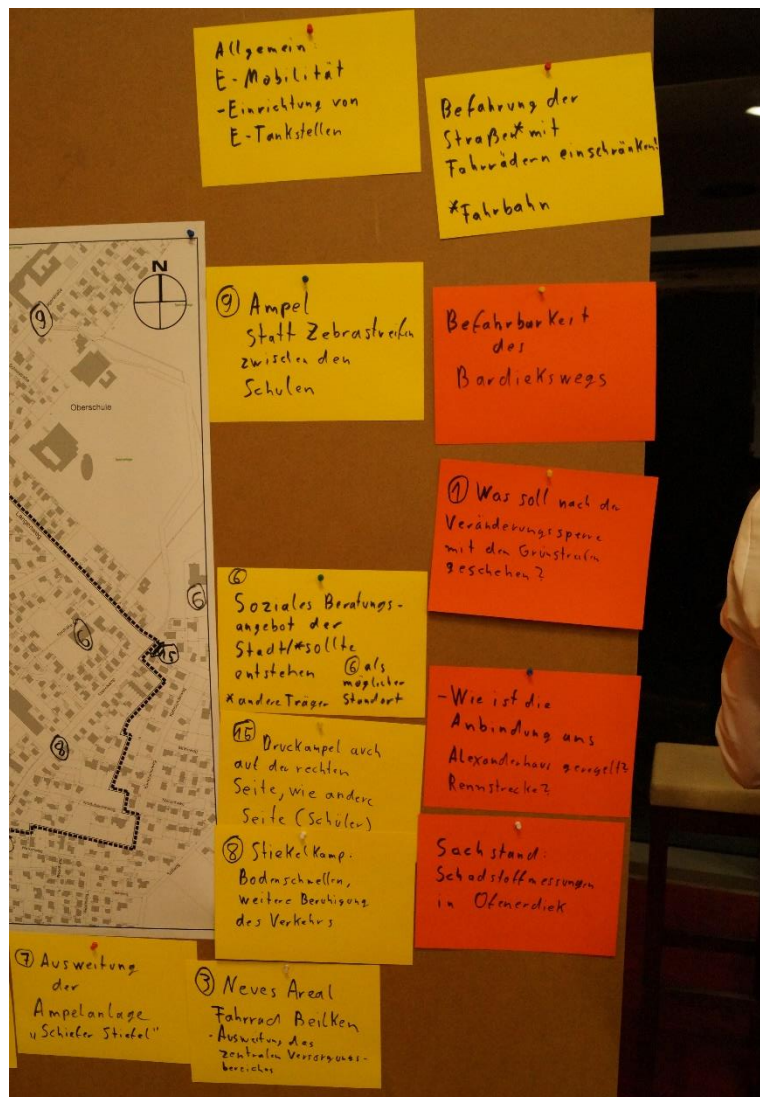 Allgemein:
E-Mobilität
-Einrichtung von
E-Tankstellen
Befahrung der
Straßen* mit
Fahrrädern einschränken!
*Fahrbahn
N
9
Oberschule
6
6
15
8
⑨ Ampel
statt Zebrastreifen
zwischen den
Schulen
Befahrbarkeit
des
Bardiekswegs
① Was soll nach der
Veränderungssperre
mit den Grünstreifen
geschehen?
⑥
Soziales Beratungs-
angebot der
Stadt/*sollte
entstehen ⑥ als
möglicher
*andere Träger Standort
- Wie ist die
Anbindung ans
Alexanderhaus geregelt?
Rennstrecke?
⑮ Druckampel auch
auf der rechten
Seite, wie andere
Seite (Schüler)
⑧ Stiekelkamp.
Bodenschwellen,
weitere Beruhigung
des Verkehrs
Sachstand:
Schadstoffmessungen
in Ofenerdiek
⑦ Ausweitung
der
Ampelanlage
"Schiefer Stiefel"
③ Neues Areal
Fahrrad Beilken
- Ausweitung des
zentralen Versorgungs-
bereiches